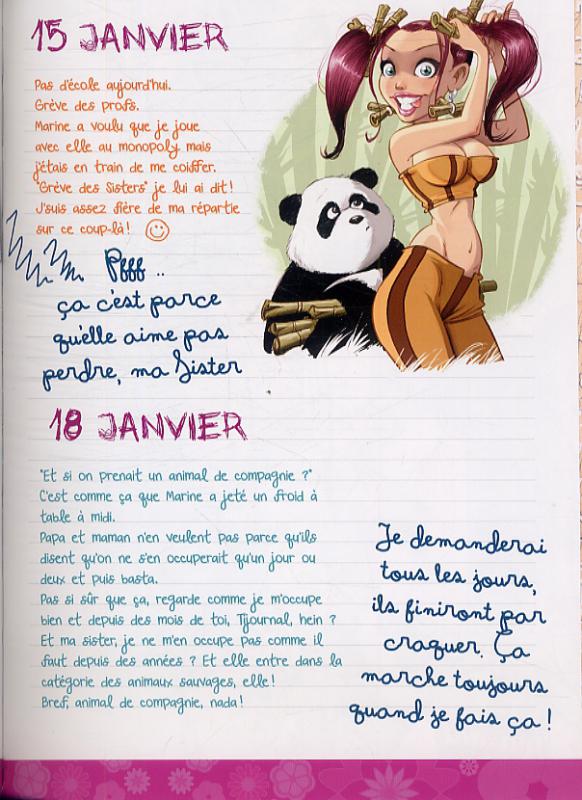 15 JANVIER
Pas d'école aujourd'hui.
Grève des profs.
Marine a voulu que je joue
avec elle au monopoly mais
j'étais en train de me coiffer.
"Grève des Sisters" je lui ai dit !
J'suis assez fière de ma répartie
sur ce coup-là !
Pfff ..
ça c'est parce
qu'elle aime pas
perdre, ma Sister
18 JANVIER
"Et si on prenait un animal de compagnie ?"
C'est comme ça que Marine a jeté un froid à
table à midi.
Papa et maman n'en veulent pas parce qu'ils
disent qu'on ne s'en occuperait qu'un jour ou
deux et puis basta.
Pas si sûr que ça, regarde comme je m'occupe
bien et depuis des mois de toi, Tjournal, hein ?
Et ma sister, je ne m'en occupe pas comme il
faut depuis des années ? Et elle entre dans la
catégorie des animaux sauvages, elle !
Bref, animal de compagnie, nada !
Je demanderai
tous les jours,
ils finiront par
craquer. Ça
marche toujours
quand je fais ça !